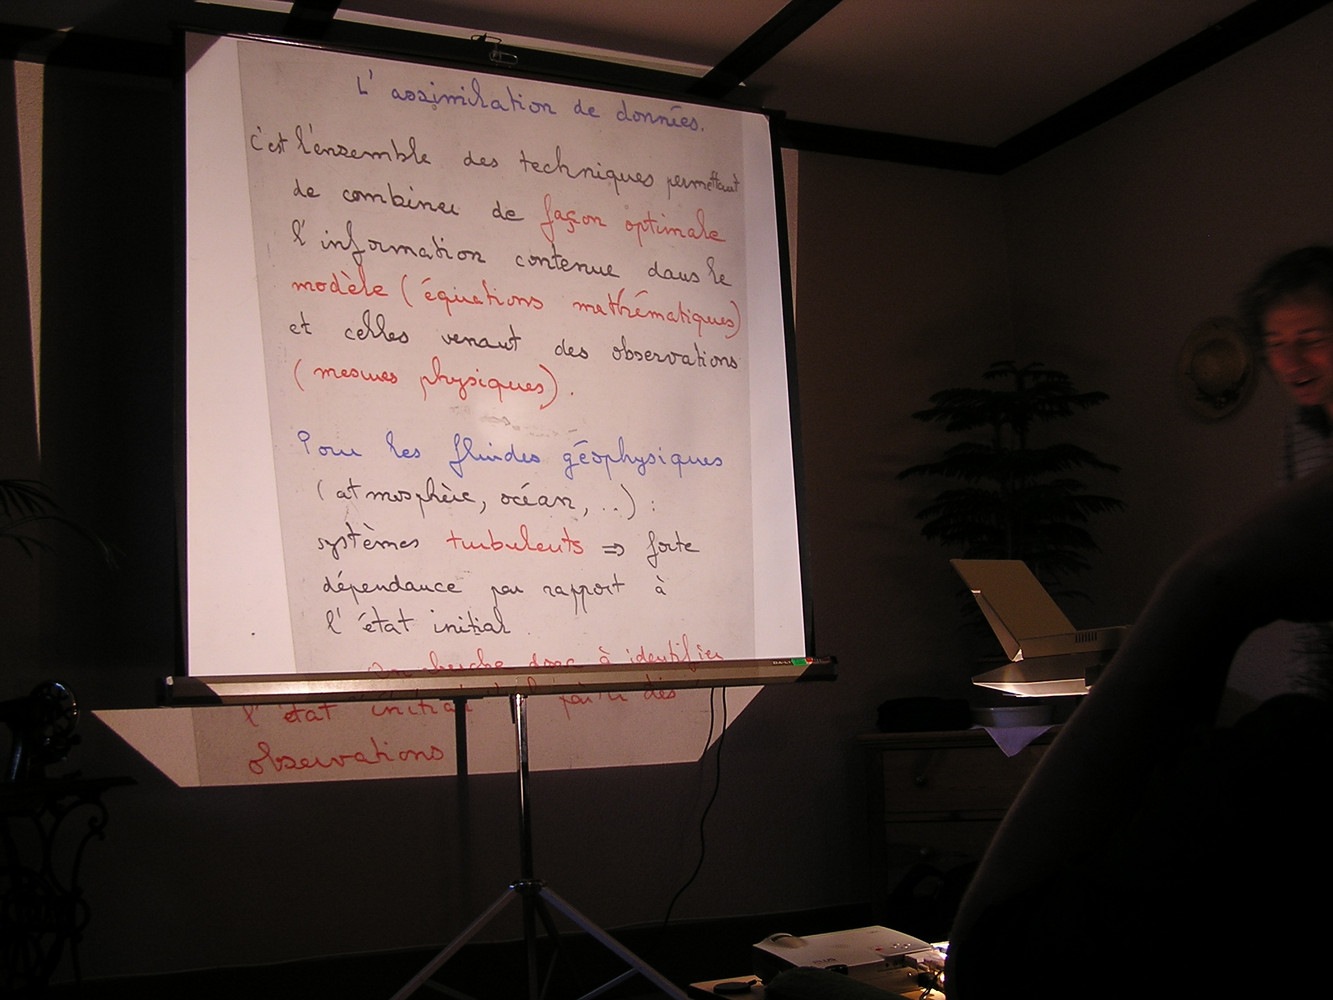 L'assimilation de données.
C'est l'ensemble des techniques permettant
de combiner de façon optimale
l'information contenue dans le
modèle (équations mathématiques)
et celles venant des observations
(mesures physiques).
Pour les fluides géophysiques
(atmosphère, océan, ..) :
systèmes turbulents ⇒ forte
dépendance par rapport à
l'état initial.
On cherche donc à identifier
l'état initial à partir des
observations